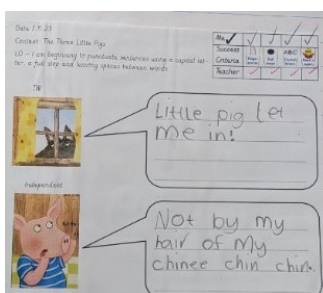 Date 1.3.23
Context: The Three Little Pigs
LO - I am beginning to punctuate sentences using a capital let-
ter, a full stop and leaving spaces between words
Me
Success
Criteria
Teacher
ABC
TW
Little pig let
me in!
Independent
Not by my
hair of my
chinee chin chin.